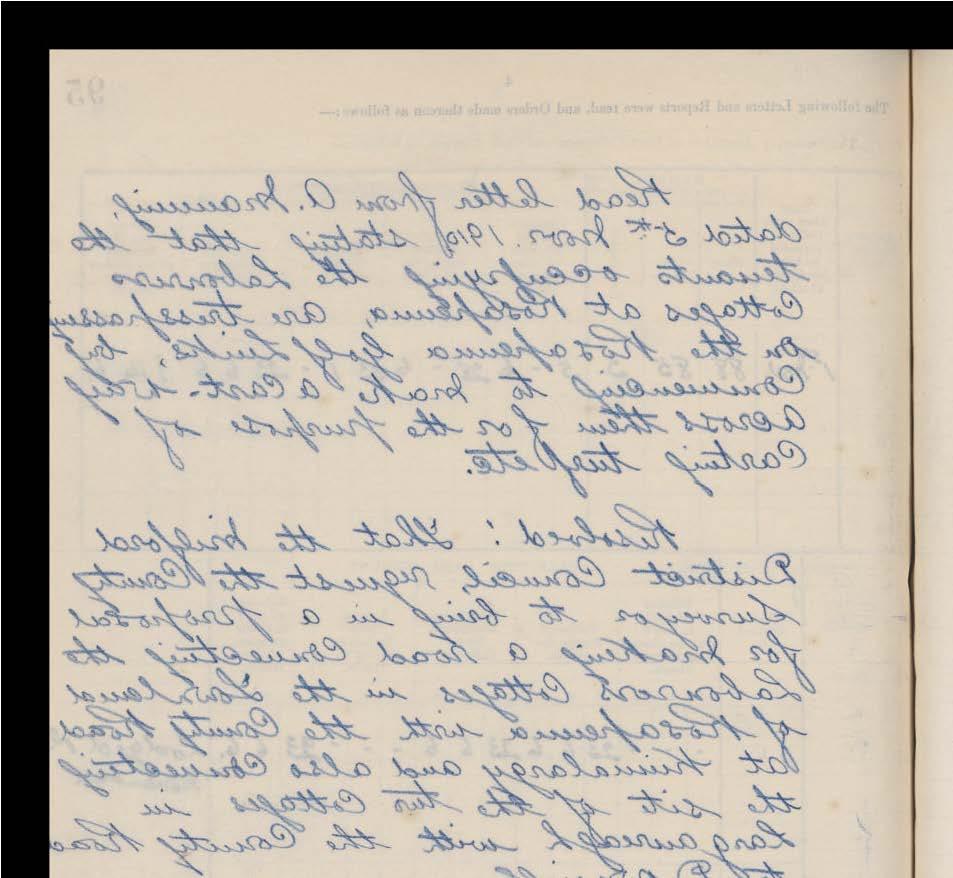 95
4
The following Letters and Reports were read, and Orders made thereon as follows:—
Read letter from A. Manning,
dated 5th Novr. 1910, stating that the
tenants occupying the Labourers
Cottages at Rosapenna, are tresspassing
on the Rosapenna Golf Links, by
Commencing to make a Cart-way
across them for the purpose of
Carting turf etc.
Resolved: That the Milford
District Council, request the County
Surveyor to bring in a proposal
for making a road Connecting the
Labourers Cottages in the Townland
of Rosapenna with the County Road
at and also Connecting
the site of the two Cottages in
with the County Road